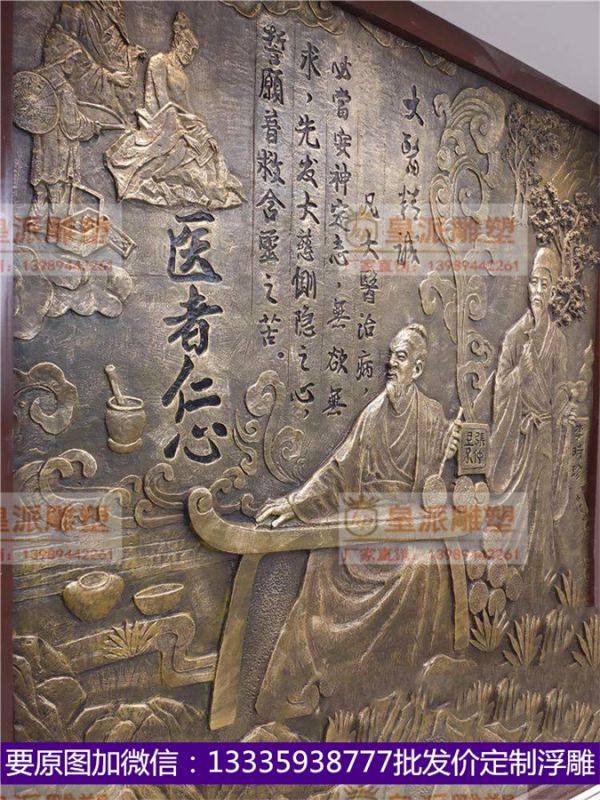 大醫精誠
凡大醫治病，
必當安神定志，無欲無
求，先发大慈惻隐之心，
誓願普救含靈之苦。
医者仁心
張仲
李時珍
皇派雕塑
厂家直销：13989442261
皇派雕塑
厂家直销：13989442261
皇派雕塑
13989442261
皇派雕塑
厂家直销：13989442261
要原图加微信：13335938777批发价定制浮雕